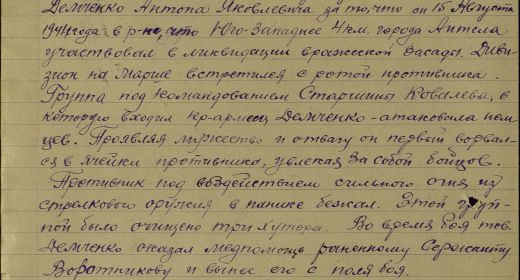 Демченко Антона Яковлевича за то, что он 15 Августа
1944 года в р-не, что Юго-Западнее 4 км. города
участвовал в ликвидации вражеской засады. Диви-
зион на марше встретился с ротой противника.
Группа под командованием Старшины Ковалева, в
которую входил кр-армеец Демченко - атаковала нем
цев. Проявляя мужество и отвагу он первый ворвал-
ся в ячейки противника, увлекая за собой бойцов.
Противник под воздействием сильного огня из
стрелкового оружия в панике бежал. Этой груп-
пой было очищено три хутора. Во время боя тов.
Демченко оказал медпомощь раненному Сержанту
Воротникову и вынес его с поля боя.